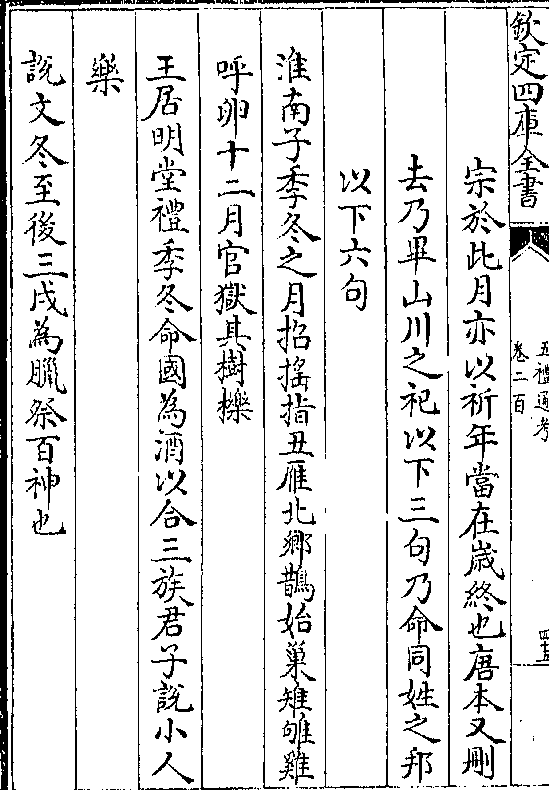 欽定四庫全書
五禮通考
卷二百
四五
宗於此月亦以祈年當在歲終也唐本又刪
去乃畢山川之祀以下三句乃命同姓之邦
以下六句
淮南子季冬之月招搖指丑雁北鄉鵲始巢雉雊雞
呼卵十二月官獄其樹櫟
王居明堂禮季冬命國為酒以合三族君子說小人
樂
說文冬至後三戌為臘祭百神也